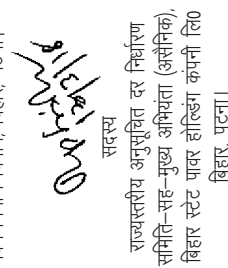 सदस्य
राज्यस्तरीय अनुसूचित दर निर्धारण
समिति–सह–मुख्य अभियंता (असैनिक),
बिहार स्टेट पावर होल्डिंग कंपनी लि0
बिहार, पटना।